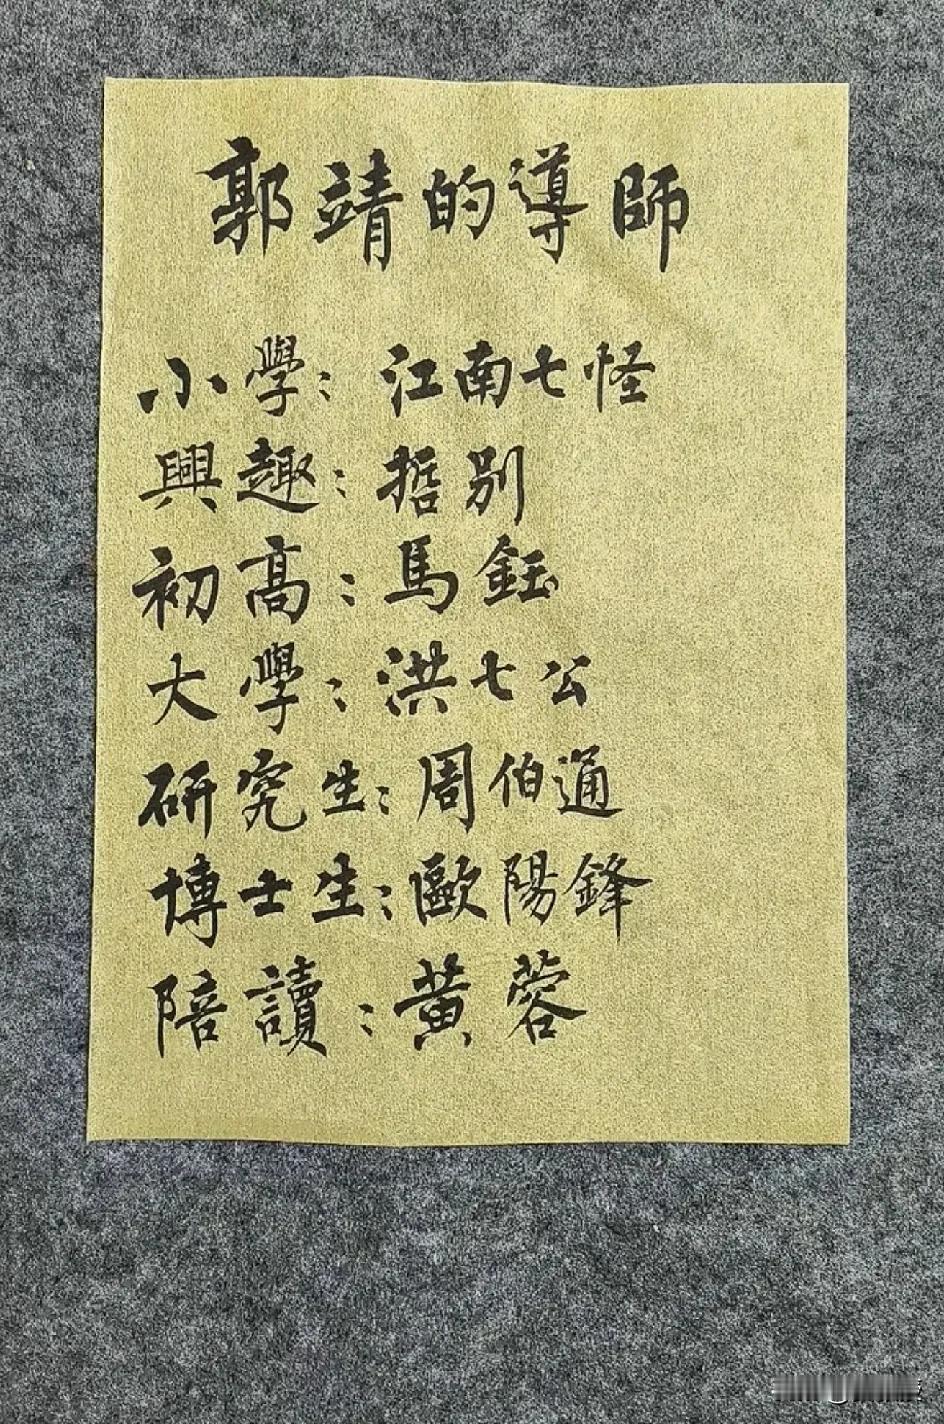 郭靖的導師
小學：江南七怪
興趣：哲别
初高：馬鈺
大學：洪七公
研究生：周伯通
博士生：歐陽鋒
陪讀：黃蓉